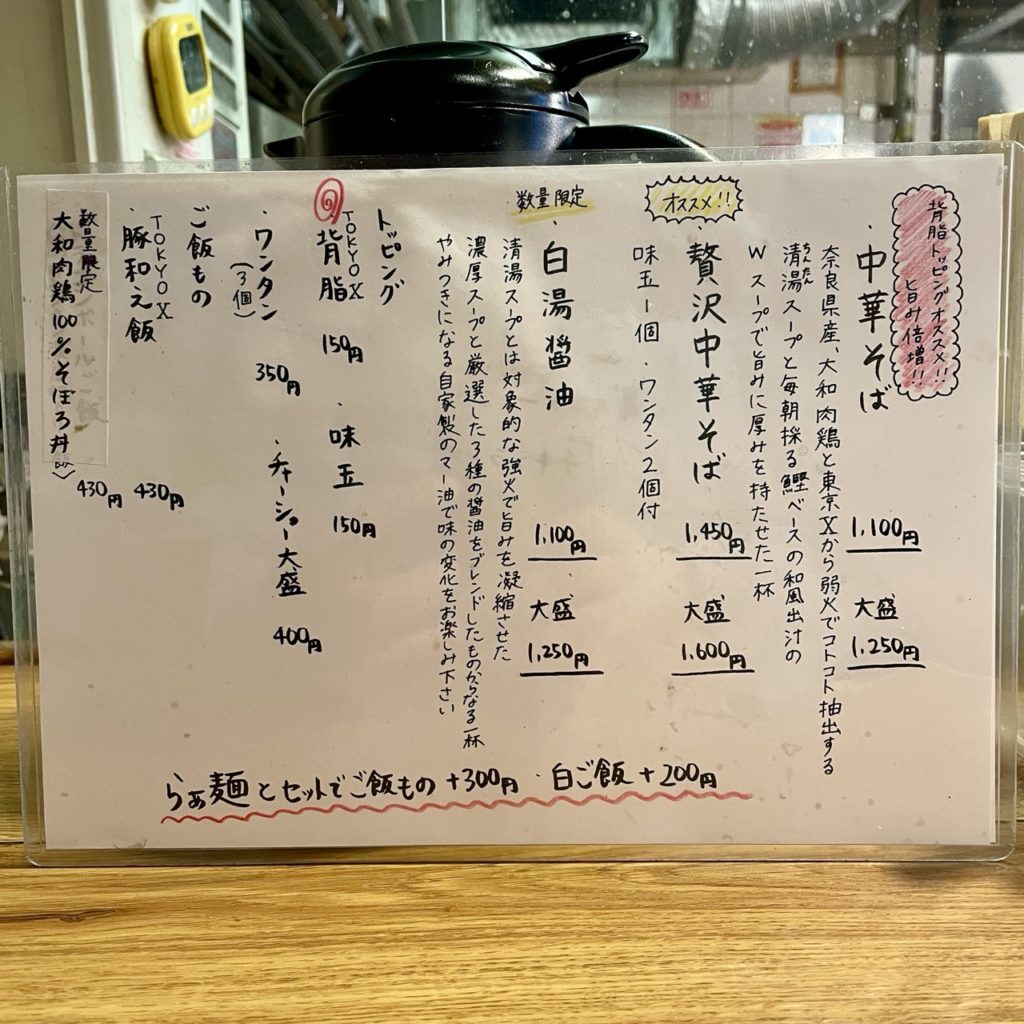 背脂トッピングオススメ!!
旨み倍増!!
・中華そば
1,100円
大盛
1,250円
奈良県産、大和肉鶏と東京Xから弱火でコトコト抽出する
ちんたん
清湯スープと毎朝採る鰹ベースの和風出汁の
Wスープで旨みに厚みを持たせた一杯
オススメ!!
・贅沢中華そば
1,450円
大盛
1,600円
味玉1個・ワンタン2個付
数量限定
・白湯醤油
1,100円
大盛
1,250円
清湯スープとは対象的な強火で旨みを凝縮させた
濃厚スープと厳選した3種の醤油をブレンドしたものからなる一杯
やみつきになる自家製のマー油で味の変化をお楽しみ下さい
トッピング
TOKYO X
背脂 150円
・味玉 150円
・ワンタン
(3個)
350円
・チャーシュー大盛
400円
ご飯もの
TOKYO X
・豚和え飯
430円
数量限定
大和肉鶏100%そぼろ丼
430円
らぁ麺とセットでご飯もの+300円 ・白ご飯+200円